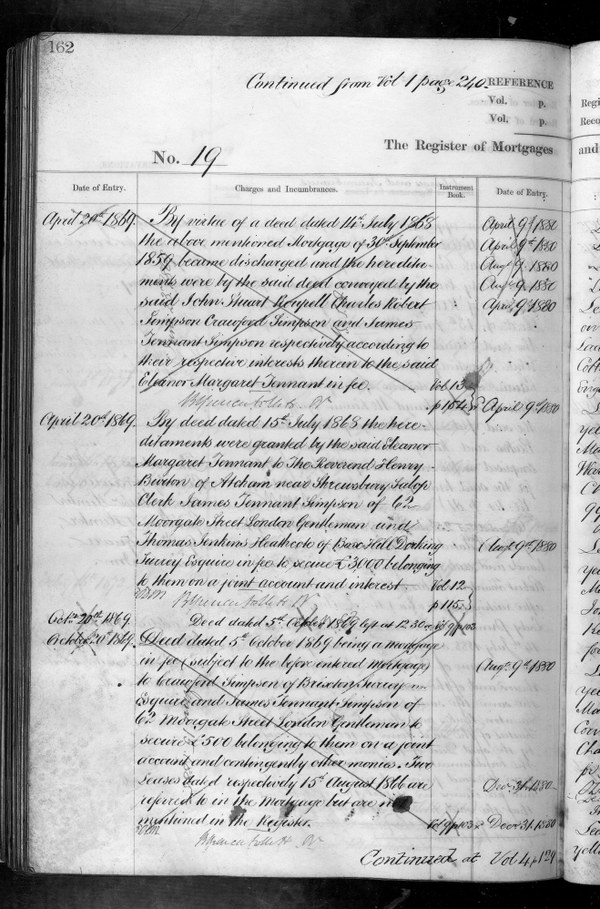 162
Continued from Vol 1 page 240. REFERENCE
Vol. p.
Vol. p.
The Register of Mortgages
No. 19
Date of Entry. Charges and Incumbrances. Instrument Book. Date of Entry.
April 20th 1869. By virtue of a deed dated 14th July 1868 April 9th 1880
the above mentioned Mortgage of 30th September April 9th 1880
1859 became discharged and the heredita- Augt 9th 1880
ments were by the said deed conveyed by the Augt 9. 1880
said John Stuart Charles Robert April 9. 1880
Simpson Crawford Simpson and James
Tennant Simpson respectively according to
their respective interests therein to the said
Eleanor Margaret Tennant in fee. Vol 13
p 154 April 9th 1880
April 20th 1869. By deed dated 15th July 1868 the here-
ditaments were granted by the said Eleanor
Margaret Tennant to The Reverend Henry
Burton of Atcham near Shrewsbury Salop
Clerk James Tennant Simpson of 62
Moorgate Street London Gentleman and
Thomas Jenkins Heathcote of Hall Dorking Augt 9th 1880
Surrey Esquire in fee to secure £3000 belonging
to them on a joint account and interest. Vol 12
p 115
Octr 20th 1869. Deed dated 5th October 1869 left at 12.30
October 20th 1869. Deed dated 5th October 1869 being a mortgage
in fee (subject to the before entered mortgage) Augt 9th 1880
to Crawford Simpson of Brixton Surrey
Esquire and James Tennant Simpson of
62 Moorgate Street London Gentleman to
secure £500 belonging to them on a joint
account and contingently other monies. Two
Leases dated respectively 15th August 1866 are Decr 31. 1880
referred to in the mortgage but are not
mentioned in the Register. Vol 9 p 103 Decr 31. 1880
Continued at Vol 4 p 129